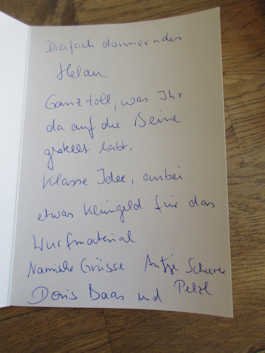 Dreifach donnerndes
Helau
Ganz toll, was Ihr
da auf die Beine
gestellt habt.
Klasse Idee, anbei
etwas Kleingeld für das
Wurfmaterial
Grüsse Antje
Doris Baas und